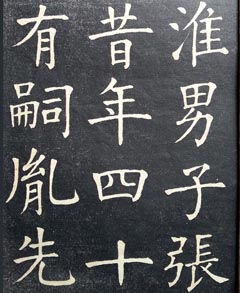 淮男子張
昔年四十
有嗣胤先